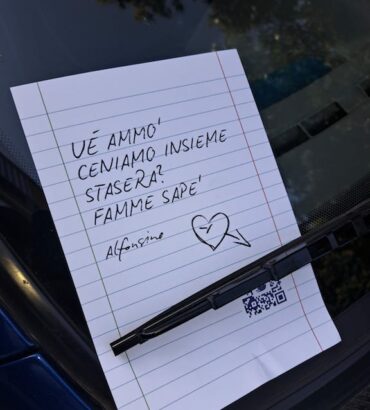 UÉ AMMO'
CENIAMO INSIEME
STASERA?
FAMME SAPE'
Alfonsino